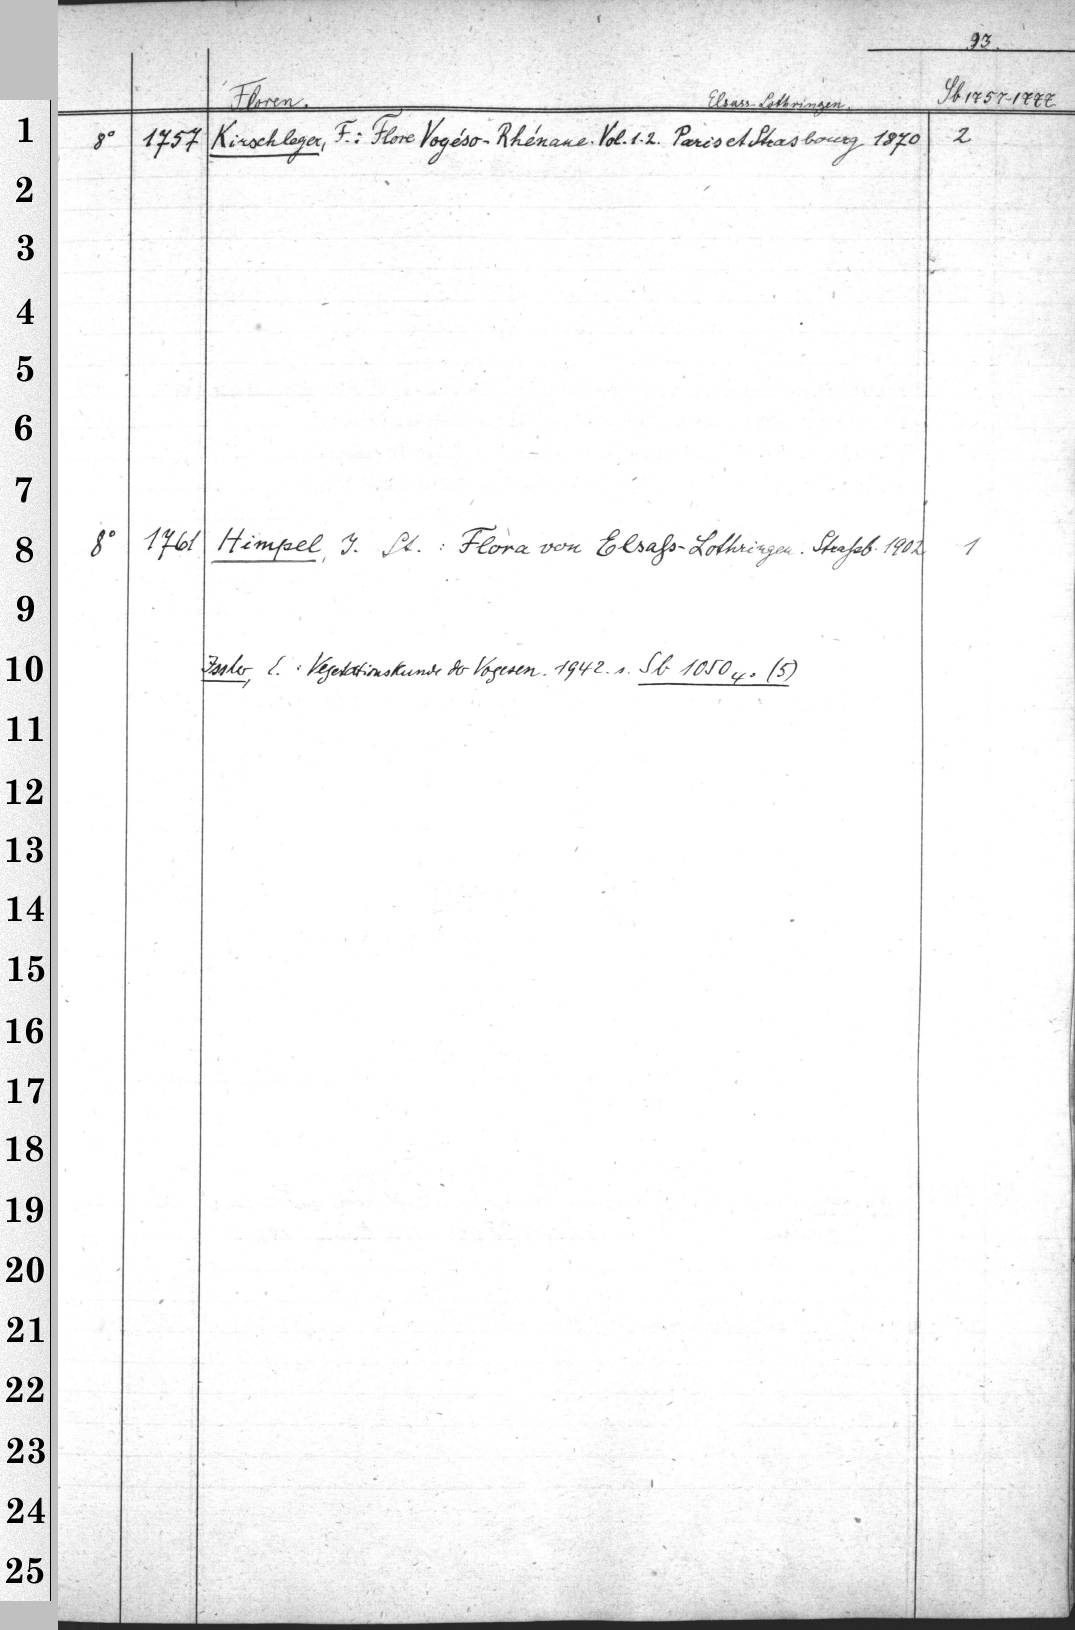 93.
Floren. Elsass-Lothringen. Sb 1757-1777
1 8° 1757 Kirschleger, F.: Flore Vogéso-Rhénane. Vol. 1-2. Paris et Strasbourg 1870 2
2
3
4
5
6
7
8 8° 1761 Himpel, J. St. : Flora von Elsaß-Lothringen. Straßb. 1902 1
9
10 Issler, E. : Vegetationskunde der Vogesen. 1942. s. Sb 1050 4° (5)
11
12
13
14
15
16
17
18
19
20
21
22
23
24
25